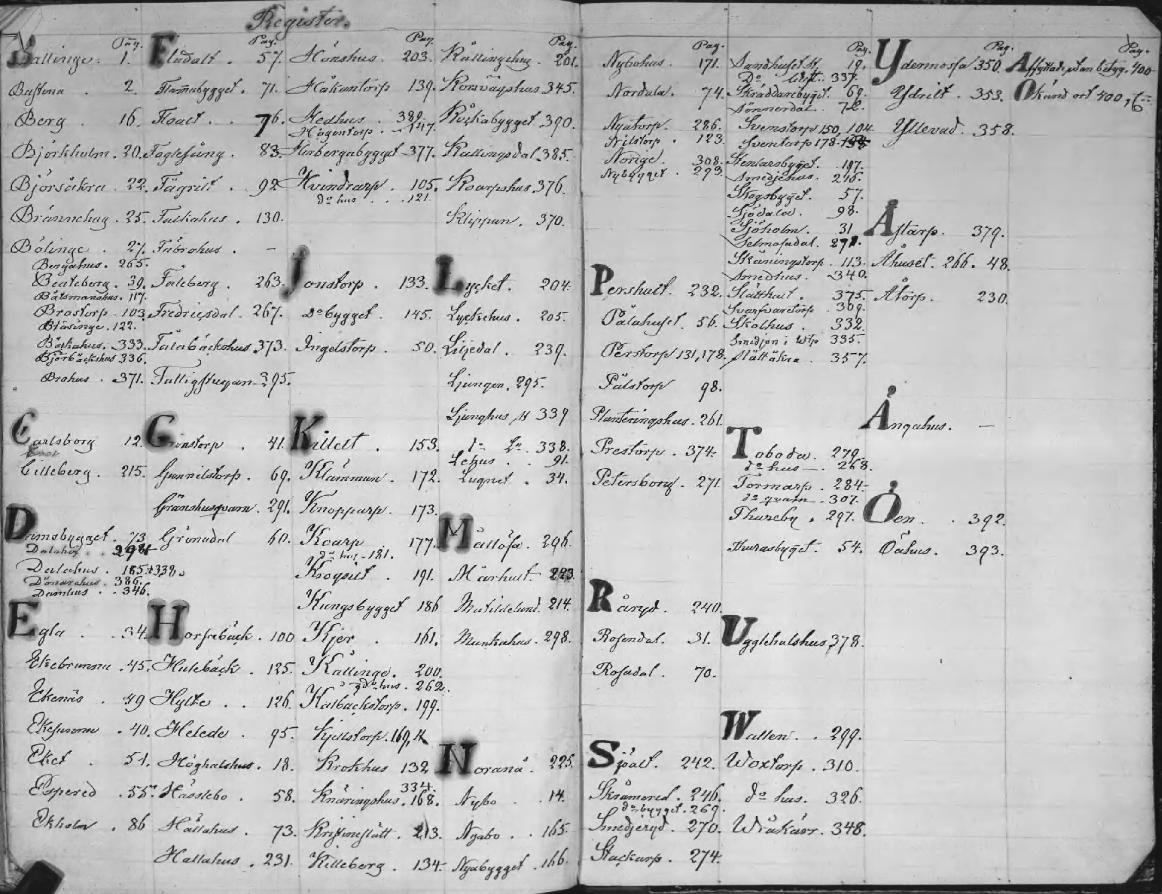 Register.
Pag.
Ballinge. 1.
Bastena . 2.
Berg . 16.
Björkholm. 20.
Björsåkra . 22.
Brännehug . 25.
Bölinge . 27.
Bergahus. 265.
Beateberg. 39.
Båtsmanshus. 117.
Brostorp . 103.
Blåsinge. 122.
Björbäckshus 336.
Brohus . 371.
Carlsborg 12.
Cilleberg . 215.
Dalahus . 185+338.
Dönarehus . 386.
Damhus . 346.
Egla . 34.
Ekebrunna . 45.
Ekenäs . 49
40.
Eket . 51.
Espered . 55.
Ekholm . 86
Pag.
Flädalt . 57.
Flamabygget . 71.
Floalt . 76.
Foglesång . 83.
Fägrilt . 92
Faskahus . 130.
Fäbrohus . –
Fåleberg . 263.
Fredriksdal . 267.
Falabäckshus 373.
Fattigstugan 395.
Ginstorp . 41.
Gunnilstorp . 69.
291.
Grönadal 60.
Horsabäck . 100
Hulebäck . 125.
Hylte . 126.
Helede . 95.
Höghalshus . 18.
Hässlebo . 58.
Hallahus . 73.
Hallahus . 231.
Pag.
Hönshus . 203.
Håkantorp 139.
Hedhus . 389.
Högentorp . 147.
377.
Hvindrarp . 105.
do hus . . 121.
Jonstorp . 133.
do bygget . 145.
Ingelstorp . 50.
Killelt . 153.
Klämman . 172.
Knopparp . 173.
Koarp 177.
do hus 181.
Krogsilt . 191.
Kungsbygget 186
Kjer . 161.
Källinge . 200.
do hus . 262.
Kalbäckstorp. 199.
Kjellstorp. 169,
Krokhus 132
334.
Knäringshus . 168.
Kristineslätt . 213.
Killeberg . 134.
Pag.
Källingehug . 201.
345.
Kåskabygget 390.
Källingsdal 385.
Koarpshus 376.
Klippan . 370.
Lycket . 204.
Lyckehus . 205.
Liljedal . 239.
Ljungen . 295.
Ljunghus 339
do do . 338.
Lehus . . 91.
Lugnet . 34.
Mallösa . 296.
Mårhult . 223.
Matildelund. 214.
Munkahus . 298.
Noranå . 225.
Nybo . 14.
Nyabo . . 165.
Nyabygget . 166.
Pag.
Nybohus . 171.
Nordala . 74.
Nyatorp . 286.
Nilstorp . 123.
Norige . 308.
Nybygget . 293.
Pershult . 232.
Pålahuset . 56.
Perstorp 131, 178.
Pålstorp 98.
Planteringshus . 261.
Prestorp . 374.
Petersborg . 271.
Råryd . 240.
Rosendal . 31.
Rosedal . 70.
Spålt . 242.
Skrämered . 246.
do bygget . 269.
Smedjeryd . 270.
Stackarp . 274.
Pag.
Sandhuset 19.
337.
Skräddarebyget 69.
Sönnerdal . 72.
Svenstorp 150, 104.
Svenstorp 178
187.
Smedjehus . 245.
Skogsbyget . 57.
Sjödalen . 98.
Sjöholm . 31.
Selmasdal . 271.
Skåningstorp . 113.
Smedhus . 340.
Slätthult . 375.
Svarfvaretorp . 309.
Skolhus . 332
Smedjan i 335.
Slättåkra . 357.
Toboda . 279.
do hus . 268.
Törmarp . 284.
do qvarn . 307.
Thureby . 297.
54.
Ugglehalshus, 378.
Wallen . . 299.
Woxtorp . 310.
do hus . 326.
Wråkåsr . 348.
Pag.
Ydermossa 350.
Ydrelt . 353.
Yllevad . 358.
Åstarp . 379.
Åhuset . 266. 48.
Åtorp . 230.
Ängahus . –
Öen . . 392.
Öahus . 393.
Pag.
400
Okänd ort 400,